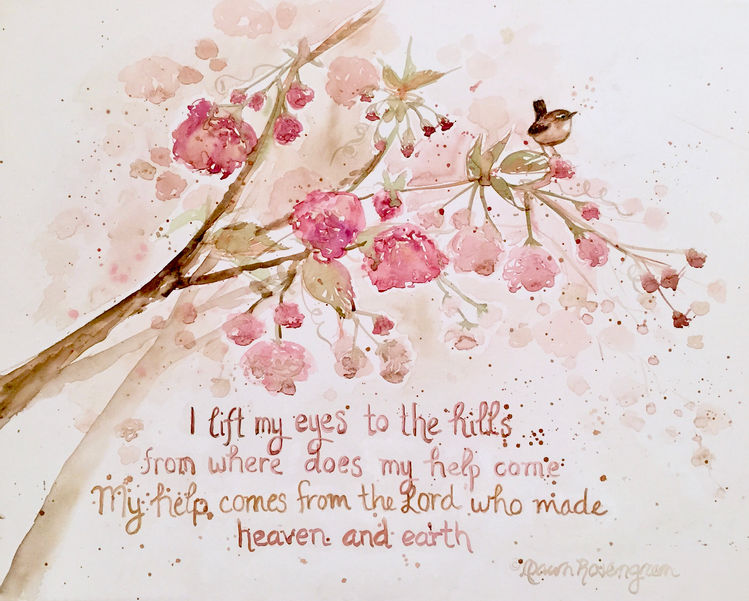 I lift my eyes to the hills
from where does my help come
My help comes from the Lord who made
heaven and earth
©Dawn Rosengren